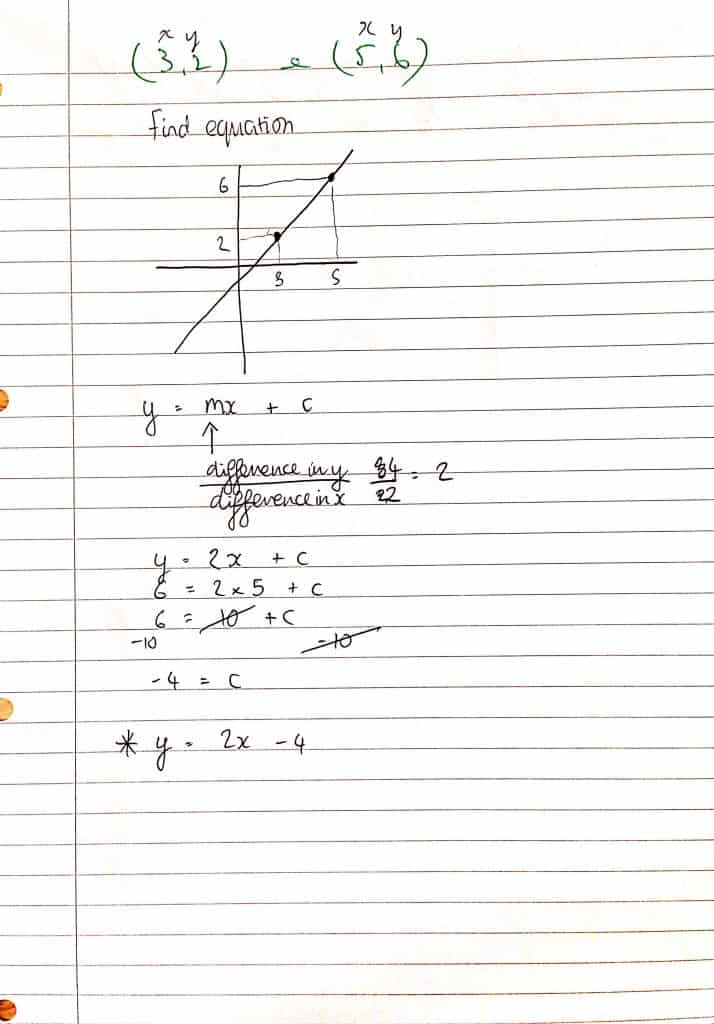 x y x y
(3,2) e (5,6)
find equation
6
2
3 5
y = mx + c
↑
difference in y 84 = 2
difference in x 22
y = 2x + c
6 = 2 × 5 + c
6 = 10 + c
-10 -10
-4 = c
* y = 2x - 4